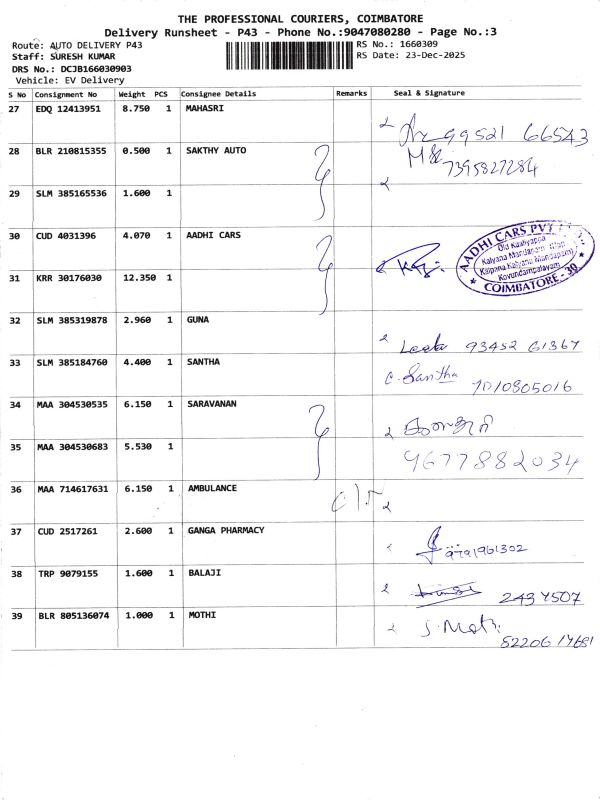 THE PROFESSIONAL COURIERS, COIMBATORE
Delivery Runsheet - P43 - Phone No.:9047080280 - Page No.:3
Route: AUTO DELIVERY P43 RS No.: 1660309
Staff: SURESH KUMAR RS Date: 23-Dec-2025
DRS No.: DCJB166030903
Vehicle: EV Delivery
S No Consignment No Weight PCS Consignee Details Remarks Seal & Signature
27 EDQ 12413951 8.750 1 MAHASRI
99521 66543
28 BLR 210815355 0.500 1 SAKTHY AUTO
7395827284
29 SLM 385165536 1.600 1
30 CUD 4031396 4.070 1 AADHI CARS
AADHI CARS PVT
Kalyana Mandapam
Kalpana Kalyana Mandapam)
Kovundampalayam
★ COIMBATORE - 30 ★
31 KRR 30176030 12.350 1
32 SLM 385319878 2.960 1 GUNA
Leela 93452 61367
33 SLM 385184760 4.400 1 SANTHA
Santha 7010805016
34 MAA 304530535 6.150 1 SARAVANAN
35 MAA 304530683 5.530 1
9677882034
36 MAA 714617631 6.150 1 AMBULANCE
37 CUD 2517261 2.600 1 GANGA PHARMACY
38 TRP 9079155 1.600 1 BALAJI
2434507
39 BLR 805136074 1.000 1 MOTHI
S. Mothi